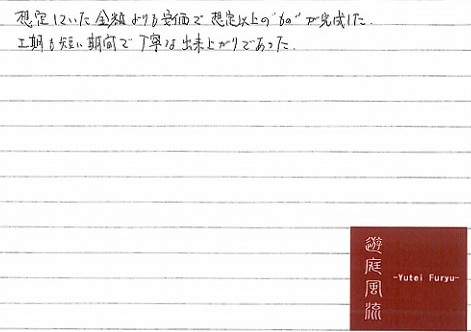 想定していた金額よりも安価で想定以上の"ba"が完成した.
工期も短い期間で丁寧な出来上がりであった.
遊庭風流
-Yutei Furyu-